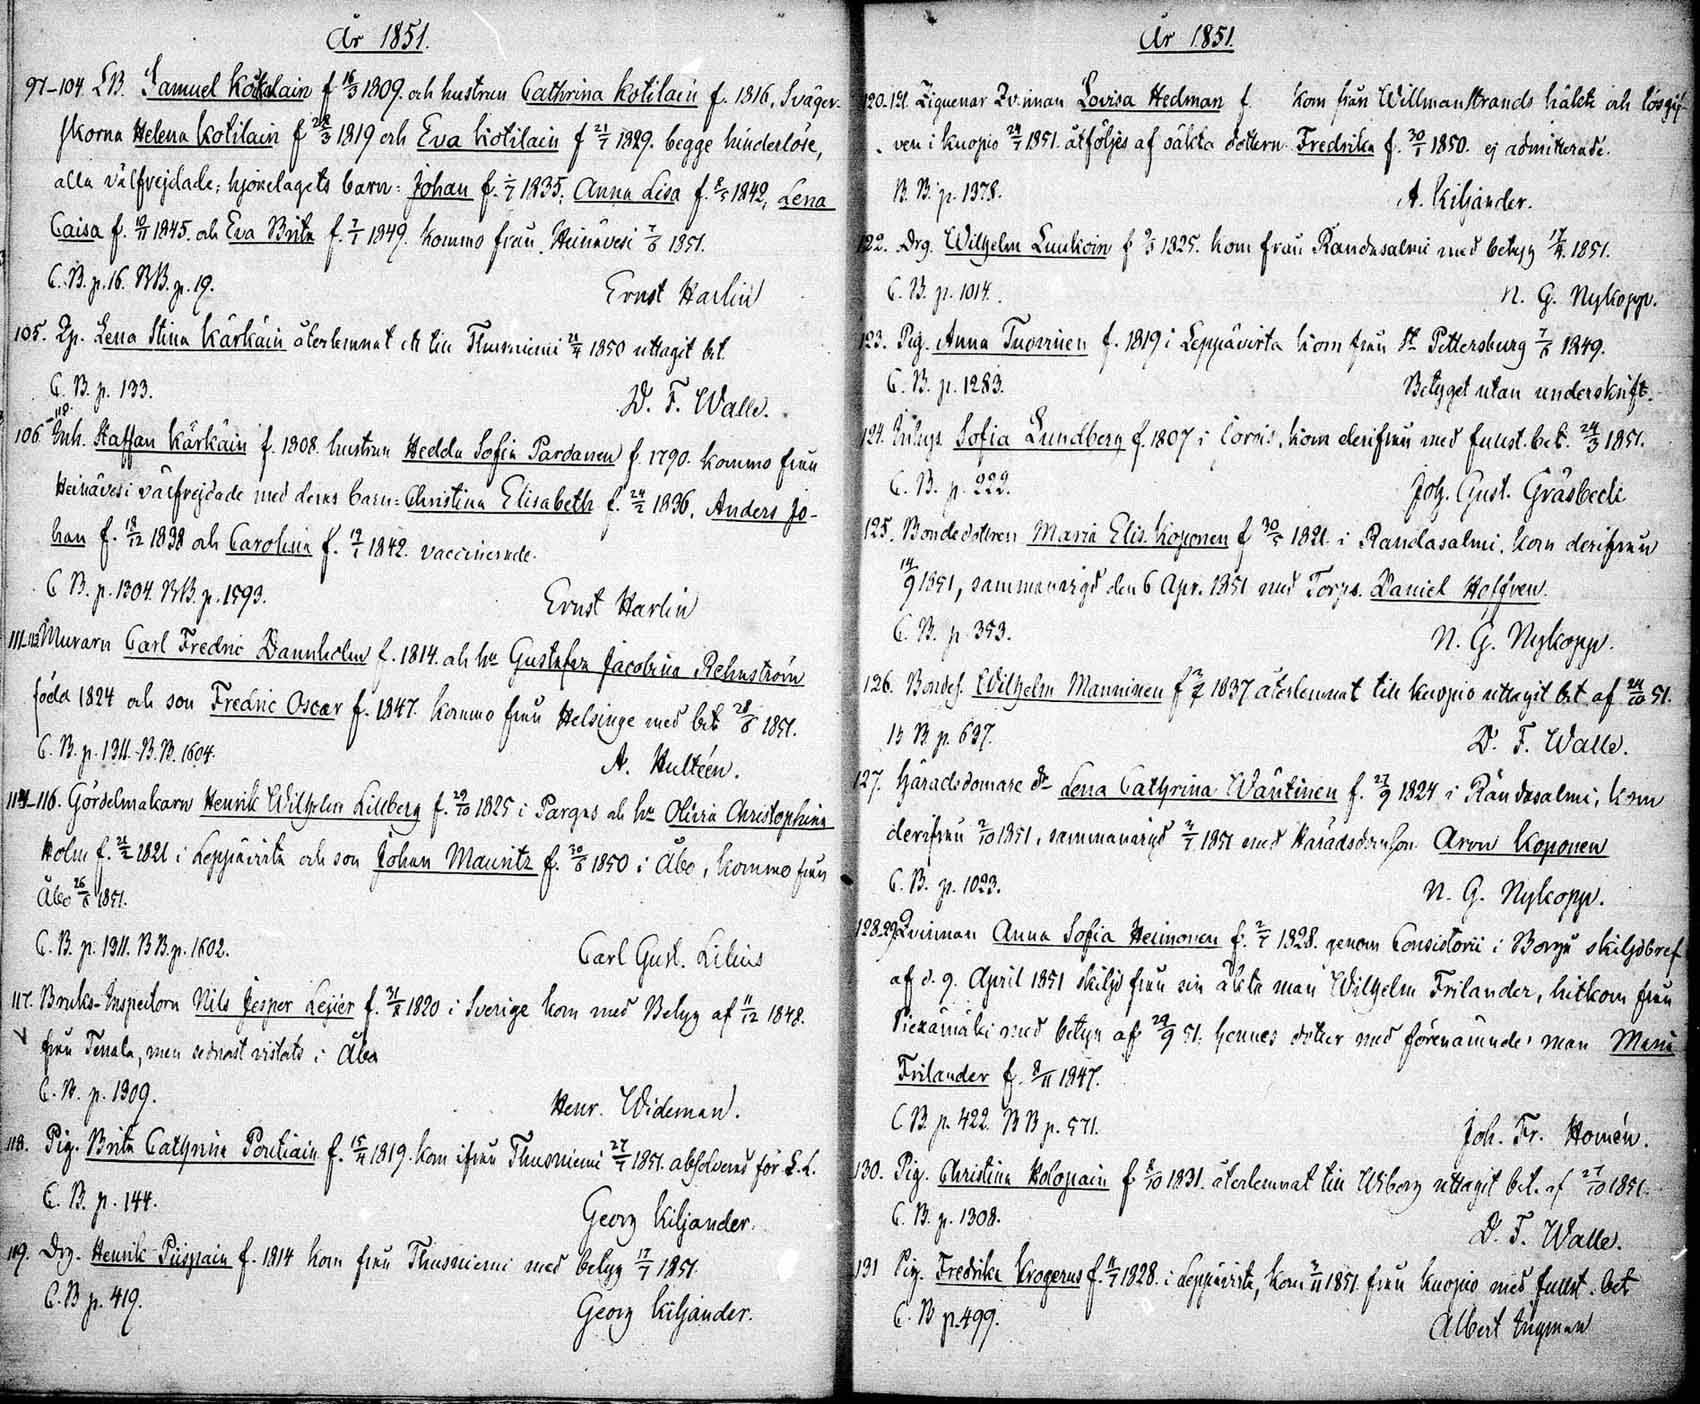 År 1851.
97-104. LB. Samuel Kotilain f 16/3 1809. och hustrun Cathrina Kotilain f. 1816, Sväger-
skorna Helena Kotilain f 22/3 1819 och Eva Kotilain f 21/1 1829. begge hinderlöse,
alla välfrejdade; hjonelagets barn: Johan f. 1835; Anna Lisa f. 1842, Lena
Caisa f. 10/11 1845. och Eva Brita f. 7/1 1849. kommo från Heinävesi 7/6 1851.
C.B. p. 16. BB. p. 19.
Ernst Harlin
105. Lena Stina Kärkäin återlemnat till Thusniemi 1850 uttagit bet.
C.B. p. 133.
D. F. Walle.
106-110. Inh. Staffan Kärkäin f. 1808. hustrun Hedda Sofia Pardanen f. 1790. kommo från
Heinävesi välfrejdade med deras barn: Christina Elisabeth f. 24/2 1836, Anders Jo-
han f. 18/12 1838 och Carolina f. 19/1 1842. vaccinerade.
C B. p. 1304. BB. p. 1593.
Ernst Harlin
111-113. Muraren Carl Fredric Dannholm f. 1814. och hu Gustafva Jacobina Rehnström
född 1824 och son Fredric Oscar f. 1847. kommo från Helsinge med bet 28/6 1851.
C. B. p. 1311. B.B. 1604.
A. Hulteén.
114-116. Gördelmakarn Henrik Wilhelm Lillberg f. 29/10 1825 i Pargas och hu Olivia Christophina
Holm f. 21/2 1821 i Leppävirta och son Johan Mauritz f. 30/6 1850 i Åbo, kommo från
Åbo 26/6 1851.
C. B. p. 1311. BB p. 1602.
Carl Gust. Lilius
117. Bruks-Inspectorn Nils Jesper Lejier f. 1820 i Sverige kom med Betyg af 11/12 1848.
från Tenala, men sednast vistats i Åbo
p. 1309.
Henr. Wideman.
118. Pig. Brita Cathrina Pontiain f. 15/4 1819. kom ifrån Thusniemi 27/7 1851. absolverad för
C. B. p. 144.
Georg Kiljander.
119. Drg. Henrik Piispain f. 1814 kom från Thusniemi med betyg 17/7 1851.
C.B p. 419.
Georg Kiljander.
År 1851.
120.121. Ziguenar Lovisa Hedman f. kom från Willmanstrands häkte och lösgif-
ven i Kuopio 1851. åtföljes af oäkta dottern Fredrika f. 30/1 1850. ej admitterade.
B. B. p. 1378.
A. Kiljander.
122. Drg. Wilhelm Luukoin f 1825. kom från Randasalmi med betyg 1851.
C. B. p. 1014.
N. G. Nykopp.
123. Pig. Anna Tuovinen f. 1819 i Leppävirta kom från St Pettersburg 7/6 1849.
C. B. p. 1283.
Betyget utan underskrift.
124. Inhys Sofia Lundberg f. 1807 i Corois, kom derifrån med fullst. bet. 24/3 1851.
C. B. p. 222.
Joh. Gust. Gräsbeck
125. Bondedottren Maria Elis. Koponen f 30/5 1821. i Randasalmi, kom derifrån
14/9 1851, sammanvigd den 6 Apr. 1851 med Torps. Daniel Hoffren.
C. B. p. 353.
N. G. Nykopp.
126. Bondes. Wilhelm Manninen f 1837 återlemnat till Kuopio uttagit bet af 24/10 51.
B B p. 637.
D. F. Walle.
127. Häradsdomare dr Lena Cathrina Wäntinen f. 27/9 1824 i Randasalmi, kom
derifrån 2/10 1851, sammanvigd 1851 med Häradsdom.son Aron Koponen
C. B. p. 1023.
N. G. Nykopp.
128.29. Qvinnan Anna Sofia Heimonen f. 1828. genom Consistorii i Borgå skiljobref
af d. 9. April 1851 skiljd från sin äkta man Wilhelm Frilander, hitkom från
Piexämäki med betyg af 29/9 51. hennes dotter med förenämnde man Maria
Frilander f. 8/11 1847.
C B. p. 422. BB p. 571.
Joh. Fr. Homén.
130. Pig. Christina Holopain f 8/10 1831. återlemnat till Wiborg uttagit bet. af 27/10 1851.
C. B. p. 1308.
D. F. Walle.
131 Pig. Fredrika Krogerus f. 11/7 1828. i Leppävirta, kom 3/11 1851. från Kuopio med fullst. bet
C. B p. 499.
Albert Ingman